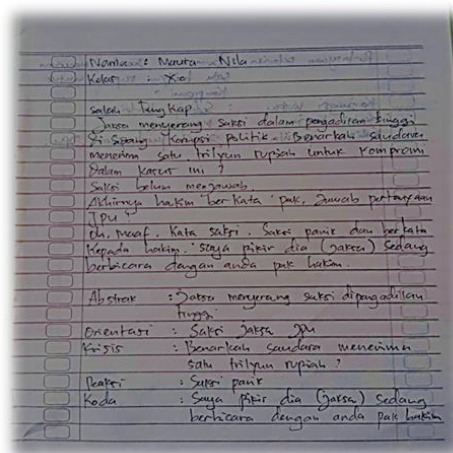 Nama : Mauta Nila
Kelas : X
Salah Tangkap
Jaksa menyerang saksi dalam pengadilan tinggi
di sidang korupsi politik. Benarkah saudara
menerima satu trilyun rupiah untuk kompromi
dalam kasus ini ?
Saksi belum menjawab.
Akhirnya hakim berkata "pak, Jawab pertanyaan
JPU"
oh, maaf. Kata saksi. Saksi panik dan berkata
kepada hakim. "saya pikir dia (jaksa) sedang
berbicara dengan anda pak hakim.
Abstrak : Jaksa menyerang saksi dipengadilan
tinggi
Orientasi : Saksi Jaksa JPU
Krisis : Benarkah saudara menerima
satu trilyun rupiah ?
Reaksi : Saksi panik
Koda : Saya pikir dia (jaksa) sedang
berbicara dengan anda pak hakim